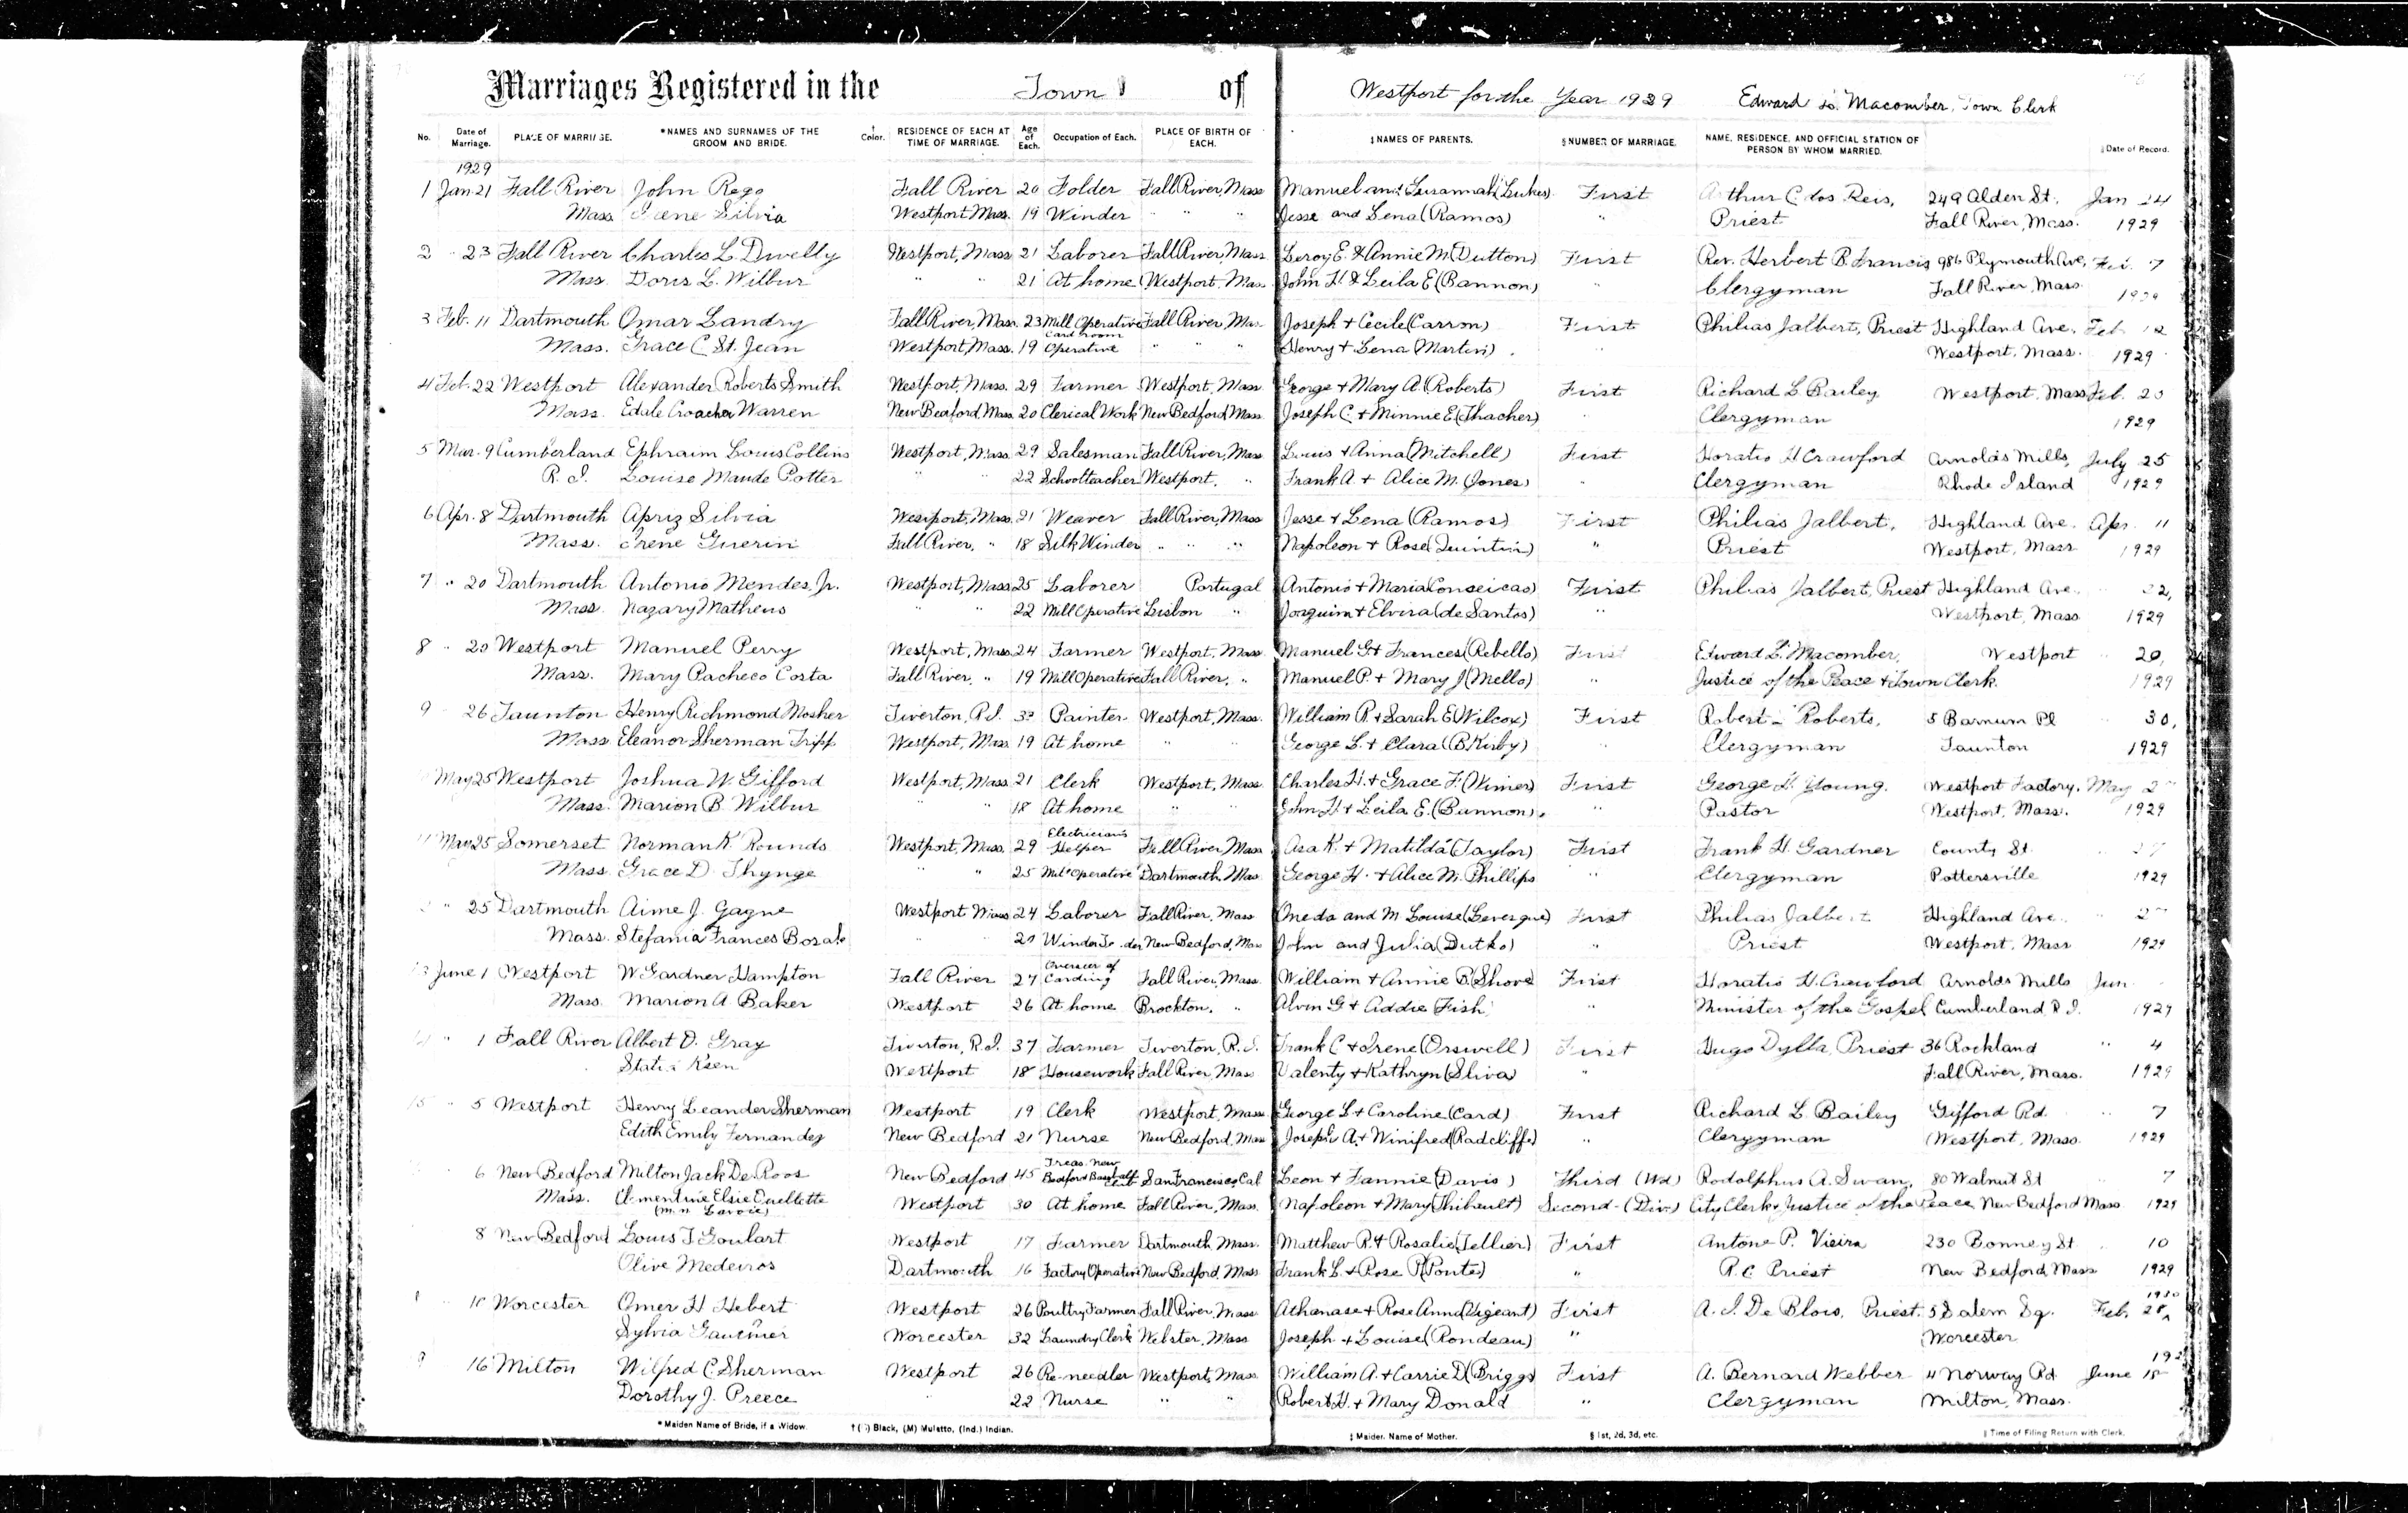 Marriages Registered in the Town of Westport for the Year 1929 Edward L. Macomber, Town Clerk
No. Date of Marriage. PLACE OF MARRIAGE. *NAMES AND SURNAMES OF THE GROOM AND BRIDE. Color. RESIDENCE OF EACH AT TIME OF MARRIAGE. Age of Each. Occupation of Each. PLACE OF BIRTH OF EACH. ‡NAMES OF PARENTS. §NUMBER OF MARRIAGE. NAME, RESIDENCE, AND OFFICIAL STATION OF PERSON BY WHOM MARRIED. ‖Date of Record.
1929
1 Jan 21 Fall River John Rego Fall River 20 Folder Fall River, Mass Manuel and Susannah (Lukes) First Arthur C. dos Reis, 249 Alden St. Jan 24
Mass. Irene Silvia Westport Mass. 19 Winder " " Jesse and Lena (Ramos) " Priest Fall River, Mass. 1929
2 " 23 Fall River Charles L. Dwelly Westport, Mass 21 Laborer Fall River, Mass Leroy E. & Annie M (Dutton) First Rev. Herbert B. Francis 986 Plymouth Ave, Feb. 7
Mass. Doris L. Wilbur " " 21 At home Westport, Mass John H. & Leila E (Bannon) " Clergyman Fall River, Mass 1929
3 Feb. 11 Dartmouth Omar Landry Fall River, Mass. 23 Mill Operative Fall River, Mass Joseph + Cecile (Carron) First Philias Jalbert, Priest Highland Ave. Feb. 12
Mass. Grace C. St. Jean Westport, Mass. 19 Card room Operative " " " Henry + Lena (Martin) " Westport, Mass. 1929
4 Feb. 22 Westport Alexander Roberts Smith Westport, Mass. 29 Farmer Westport, Mass George + Mary A. (Roberts) First Richard L. Bailey Westport, Mass Feb. 23
Mass. Warren New Bedford Mass. 20 Clerical Work New Bedford, Mass. Joseph C. + Minnie E. (Thacher) " Clergyman 1929
5 Mar. 9 Cumberland Ephraim Louis Collins Westport, Mass. 29 Salesman Fall River, Mass Louis + Anna (Mitchell) First Horatio H Crawford Arnolds Mills, July 25
R. I. Louise Maude Potter " " 22 Schoolteacher Westport, " Frank A. + Alice M. (Jones) " Clergyman Rhode Island 1929
6 Apr. 8 Dartmouth Apriz Silvia Westport, Mass. 21 Weaver Fall River, Mass Jesse + Lena (Ramos) First Philias Jalbert, Highland Ave. Apr. 11
Mass. Irene Guerin Fall River, " 18 Silk Winder " " " Napoleon + Rose (Quintin) " Priest Westport, Mass 1929
7 " 20 Dartmouth Antonio Mendes, Jr. Westport, Mass 25 Laborer Portugal Antonio + Maria (Conseicao) First Philias Jalbert, Priest Highland Ave. " 22,
Mass. Nazary Matheus " " 22 Mill Operative Lisbon " Joaquim + Elvira (de Santos) " Westport, Mass 1929
8 " 20 Westport Manuel Perry Westport, Mass. 24 Farmer Westport, Mass Manuel G + Frances (Rebello) First Edward L. Macomber, Westport " 20,
Mass. Mary Pacheco Costa Fall River, " 19 Mill Operative Fall River, " Manuel P. + Mary J (Mello) " Justice of the Peace + Town Clerk. 1929
9 " 26 Taunton Henry Richmond Mosher Tiverton, R.I. Painter Westport, Mass. William R. + Sarah E (Wilcox) First Robert Roberts, 5 Barnum Pl " 30,
Mass. Eleanor Sherman Tripp Westport, Mass 19 At home " " George L. + Clara (B Kirby) " Clergyman Taunton 1929
May 25 Westport Joshua W. Gifford Westport, Mass. 21 Clerk Westport, Mass. Charles H. + Grace F. (Wimer) First George H. Young. Westport Factory, May
Mass. Marion B. Wilbur " " 18 At home " " John H. + Leila E. (Bannon) " Pastor Westport, Mass. 1929
11 May 25 Somerset Norman K. Rounds Westport, Mass. 29 Electrician's Helper Fall River, Mass Asa K. + Matilda (Taylor) First Frank H. Gardner County St. " 27
Mass. Grace D. Thynge " " 25 Mill Operative Dartmouth, Mass George H. + Alice M. Phillips " Clergyman Pottersville 1929
" 25 Dartmouth Aime J. Gagne Westport Mass 24 Laborer Fall River, Mass Oneda and M. Louise (Levesque) First Philias Jalbert Highland Ave. "
Mass. Stefania Frances " 20 New Bedford, Mass John and Julia (Dutko) " Priest Westport, Mass 1929
13 June 1 Westport W. Gardner Hampton Fall River 27 Overseer of Carding Fall River, Mass. William + Annie B. (Shove) First Horatio H. Crawford Arnolds Mills Jun
Mass. Marion A. Baker Westport 26 At home Brockton, " Alvin G + Addie Fish " Minister of the Gospel Cumberland, R.I. 1929
14 " 1 Fall River Albert D. Gray Tiverton, R.I. 37 Farmer Tiverton, R.I. Frank C + Irene (Orswell) First Hugo Dylla, Priest 36 Rockland " 4
Westport 18 Housework Fall River, Mass Valenty + Kathryn (Sliva) " Fall River, Mass. 1929
15 " 5 Westport Henry Leander Sherman Westport 19 Clerk Westport, Mass George L + Caroline (Card) First Richard L Bailey Gifford Rd. " 7
Edith Emily Fernandez New Bedford 21 Nurse New Bedford, Mass Joseph A. + Winifred (Radcliffe) " Clergyman Westport, Mass. 1929
6 New Bedford Milton Jack De Roos New Bedford 45 Treas. New Bedford Baseball Club San Francisco, Cal Leon + Fannie (Davis) Third (Wd) Rodolphus A. Swan, 80 Walnut St " 7
Mass. Clementine Elsie Ouellette Westport 30 At home Fall River, Mass. Napoleon + Mary (Thibault) Second (Div.) City Clerk + Justice of the Peace New Bedford Mass. 1929
(m.n. Lavoie)
8 New Bedford Louis J Goulart Westport 17 Farmer Dartmouth, Mass. Matthew R. + Rosalie (Tellier) First Antone P. Vieira 230 Bonney St " 10
Olive Medeiros Dartmouth 16 Factory Operative New Bedford, Mass Frank L. + Rose P (Ponte) " R.C. Priest New Bedford, Mass 1929
10 Worcester Omer H Hebert Westport 26 Poultry Farmer Fall River, Mass. Athanase + Rose Anna (Vigeant) First A. I. De Blois, Priest, 5 Salem Sq. Feb. 28, 1930
Sylvia Gauthier Worcester 32 Laundry Clerk Webster, Mass Joseph + Louise (Rondeau) " Worcester
16 Milton Wilfred C. Sherman Westport 26 Re-needler Westport, Mass. William A. + Carrie D (Briggs) First A. Bernard Webber 11 Norway Rd June 18
Dorothy J. Preece " 22 Nurse " " Robert H. + Mary Donald " Clergyman Milton, Mass.
* Maiden Name of Bride, if a Widow. † Black, (M) Mulatto, (Ind.) Indian. ‡ Maiden Name of Mother. § 1st, 2d, 3d, etc. ‖ Time of Filing Return with Clerk.